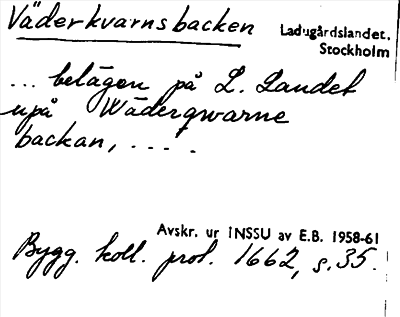 Väderkvarnsbacken
Ladugårdslandet,
Stockholm
... belägen på L. Landet
upå Wäderqwarne
backan, ... .
Avskr. ur INSSU av E.B. 1958-61
Bygg. koll. prot. 1662, s. 35.